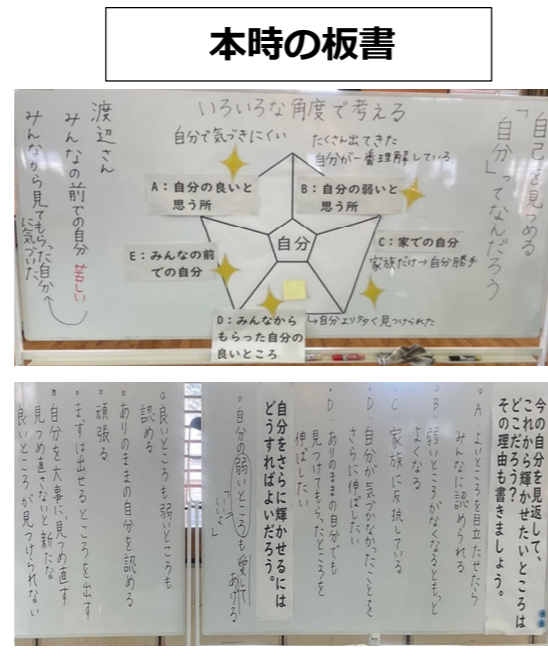 本時の板書
自己を見つめる
「自分」ってなんだろう
いろいろな角度で考える
自分で気づきにくい
たくさん出てきた
自分が一番理解している。
A：自分の良いと
思う所
B：自分の弱いと
思う所
C：家での自分
家族だけ→自分勝手
自分
E：みんなの前
での自分
D：みんなから
もらった自分の
良いところ
↳自分より多く見つけられた
渡辺さん
みんなの前での自分 苦しい
みんなから見てもらった自分
に気づいた
今の自分を見返して、
これから輝かせたいところは
どこだろう？
その理由も書きましょう。
○A：よいところを目立たせたら
みんなに認められる
○B：弱いところがなくなるともっと
よくなる
○C：家族に反抗している
○D：自分が気づかなかったことを
さらに伸ばしたい
○D：ありのままの自分でも
見つけてもらったところを
伸ばしたい
自分をさらに輝かせるには
どうすればよいだろう。
○自分の弱いところも愛して
あげる
「いいよ」
○良いところも弱いところも
認める
○ありのままの自分を認める
○頑張る
○まずは出せるところを出す
○自分を大事に見つめ直す
見つめ直さないと新たな
良いところが見つけられない